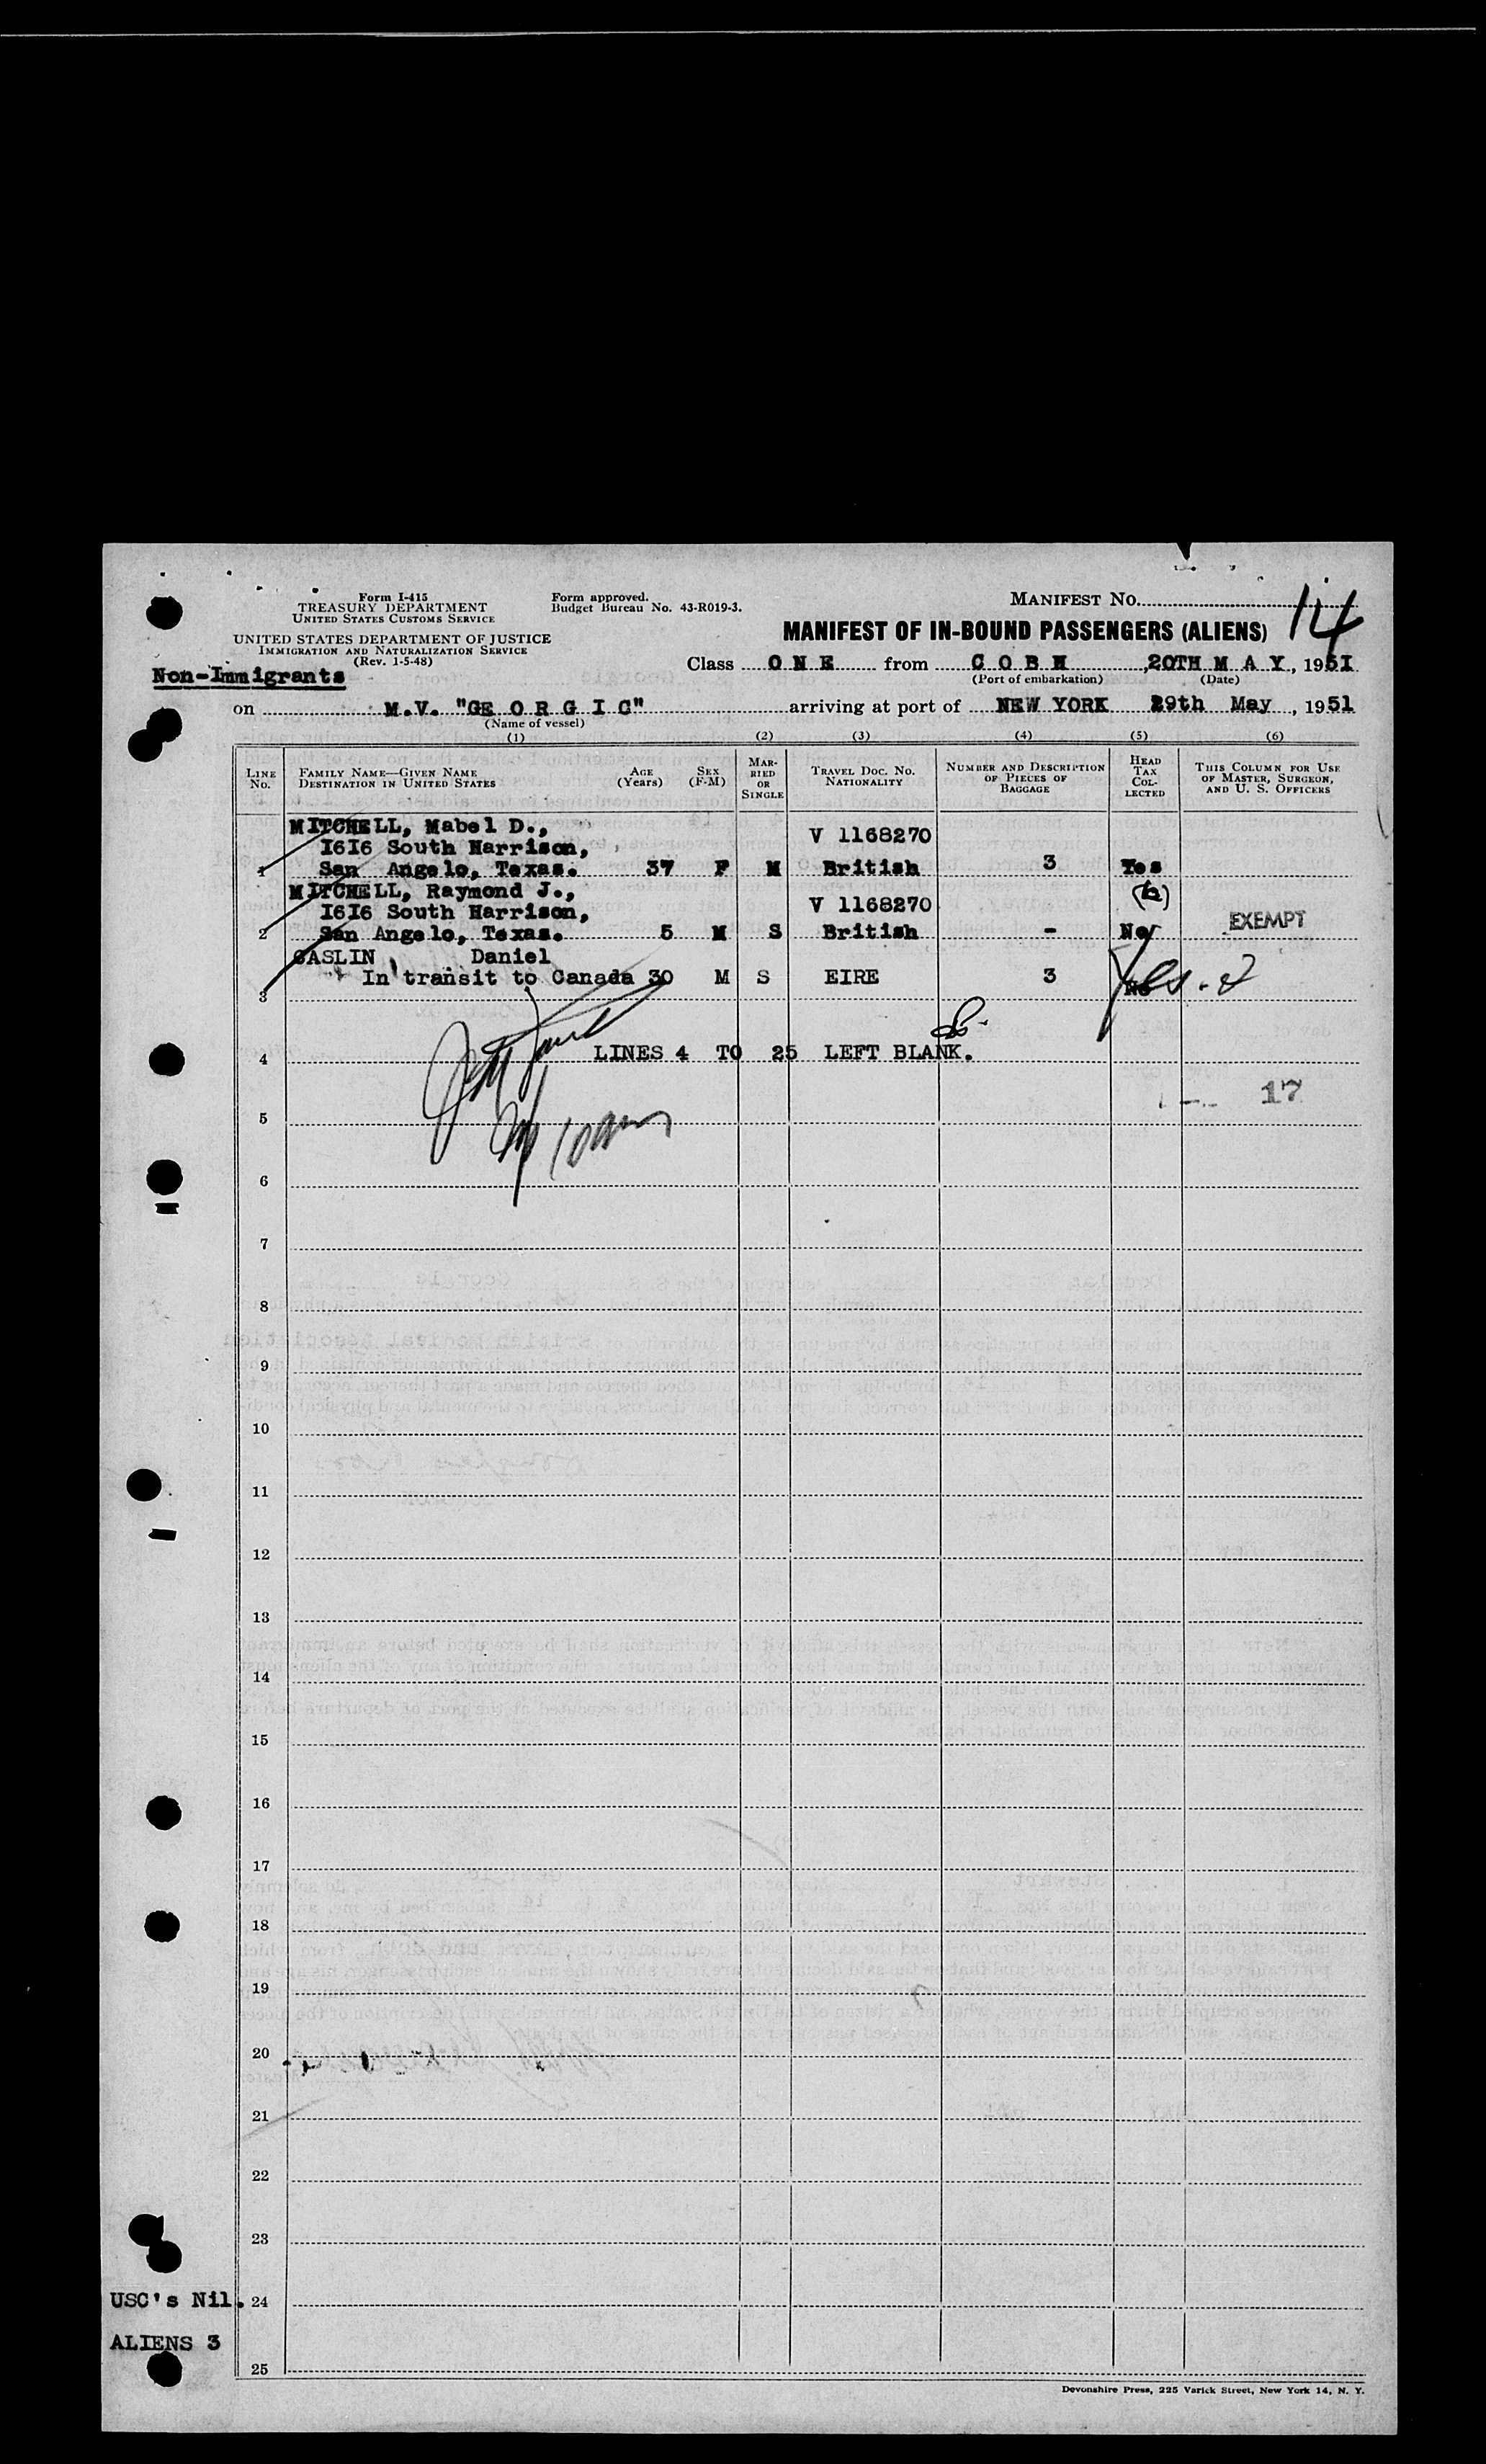 Form I-415
TREASURY DEPARTMENT
UNITED STATES CUSTOMS SERVICE
Form approved.
Budget Bureau No. 43-R019-3.
MANIFEST NO. 14
UNITED STATES DEPARTMENT OF JUSTICE
IMMIGRATION AND NATURALIZATION SERVICE
(Rev. 1-5-48)
MANIFEST OF IN-BOUND PASSENGERS (ALIENS)
Non-Immigrants
Class O N E from C O B H, 20TH M A Y, 1951
(Port of embarkation) (Date)
on M.V. "GE O R G I C" arriving at port of NEW YORK 29th May, 1951
(Name of vessel)
(1) (2) (3) (4) (5) (6)
LINE NO. FAMILY NAME—GIVEN NAME DESTINATION IN UNITED STATES AGE (Years) SEX (F-M) MARRIED OR SINGLE TRAVEL DOC. NO. NATIONALITY NUMBER AND DESCRIPTION OF PIECES OF BAGGAGE HEAD TAX COLLECTED THIS COLUMN FOR USE OF MASTER, SURGEON, AND U. S. OFFICERS
MITCHELL, Mabel D.,
I6I6 South Harrison, V 1168270
1 San Angelo, Texas. 37 F M British 3 Yes
MITCHELL, Raymond J.,
I6I6 South Harrison, V 1168270
2 San Angelo, Texas. 5 M S British - No EXEMPT
GASLIN, Daniel
In transit to Canada 30 M S EIRE 3 No Yes
3
4 LINES 4 TO 25 LEFT BLANK.
17
5
6
7
8
9
10
11
12
13
14
15
16
17
18
19
20
21
22
23
USC's Nil. 24
ALIENS 3
25
Devonshire Press, 225 Varick Street, New York 14, N. Y.